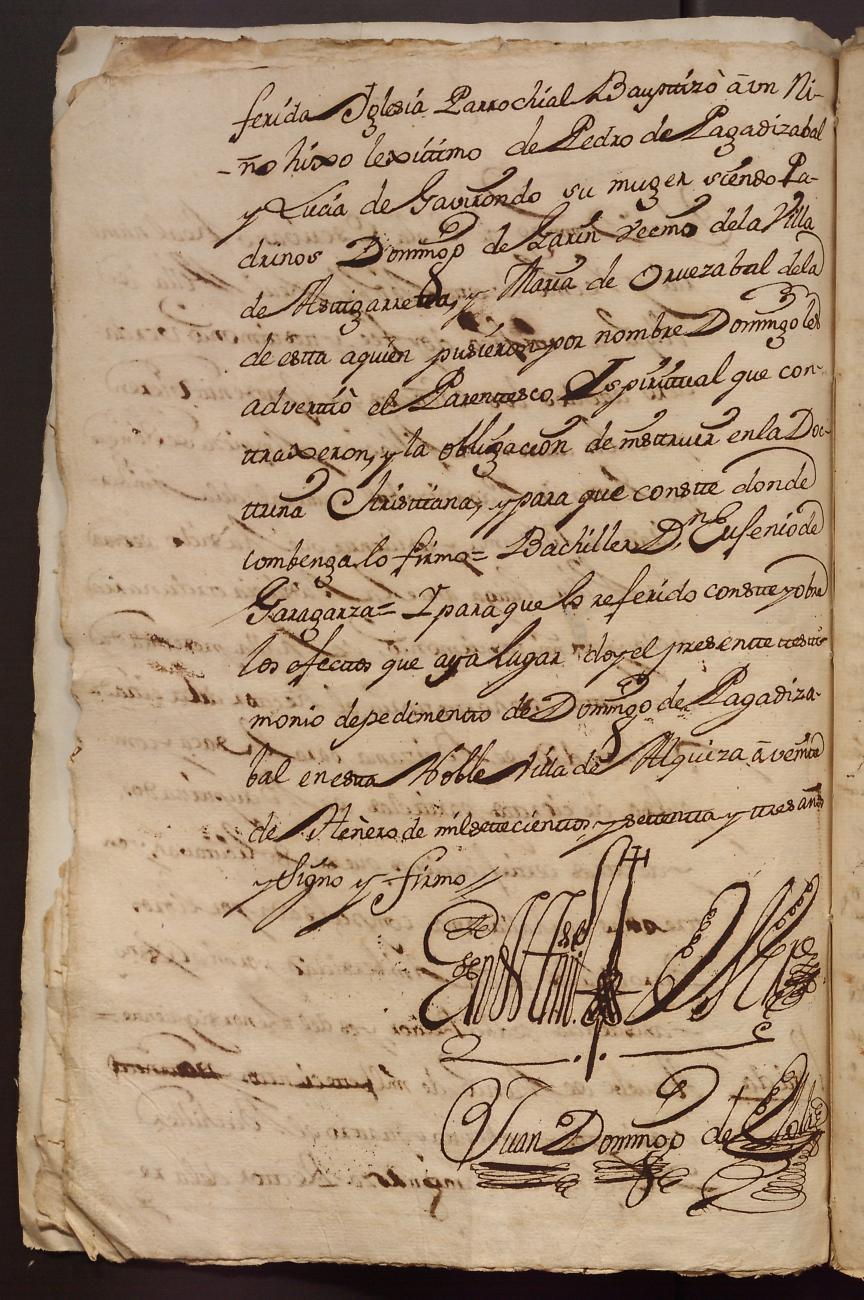 ferida Iglesia Parrochial Bauptizò à vn Ni-
-ño hixo lexitimo de Pedro de Pagadizabal
y Lucia de Gavirondo su muger siendo Pa-
drinos Domingo de Garin vecino dela Villa
de Astigarreta, y Maria de Oruezabal dela
de estta aquien pusieron por nombre Domingo les
adverttiò el Parenttesco Espirittual que con-
ttraxeron, y la obligacion de insttruir en la Doc-
ttrina Christtiana, y para que constte donde
combenga lo firmo = Bachiller Dn Eusenio de
Garagarza = Y para que lo referido constte y obre
los efecttos que aya lugar doy el presentte ttestti-
monio depedimentto de Domingo de Pagadiza-
bal en estta Noble Villa de Alquiza à veintte
de Henero de mil settecienttos y settentta y ttres años
y signo y firmo //
En testtimº de Verd
Juan Domingo de